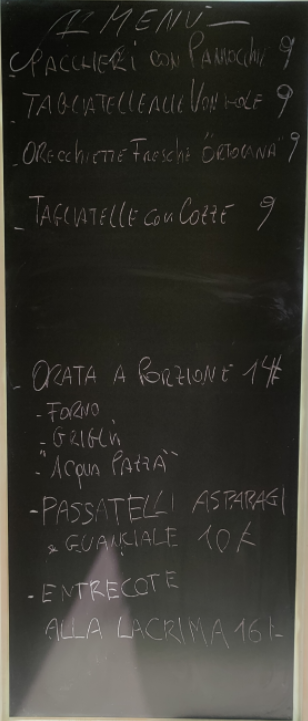 MENÙ
- PACCHERI CON PANNOCCHIE 9
- TAGLIATELLE ALLE VONGOLE 9
- ORECCHIETTE FRESCHE "ORTOLANA" 9
- TAGLIATELLE CON COZZE 9
- ORATA A PORZIONE 14€
- FORNO
- GRIGLIA
- "ACQUA PAZZA"
- PASSATELLI ASPARAGI
& GUANCIALE 10€
- ENTRECOTE
ALLA LACRIMA 16€